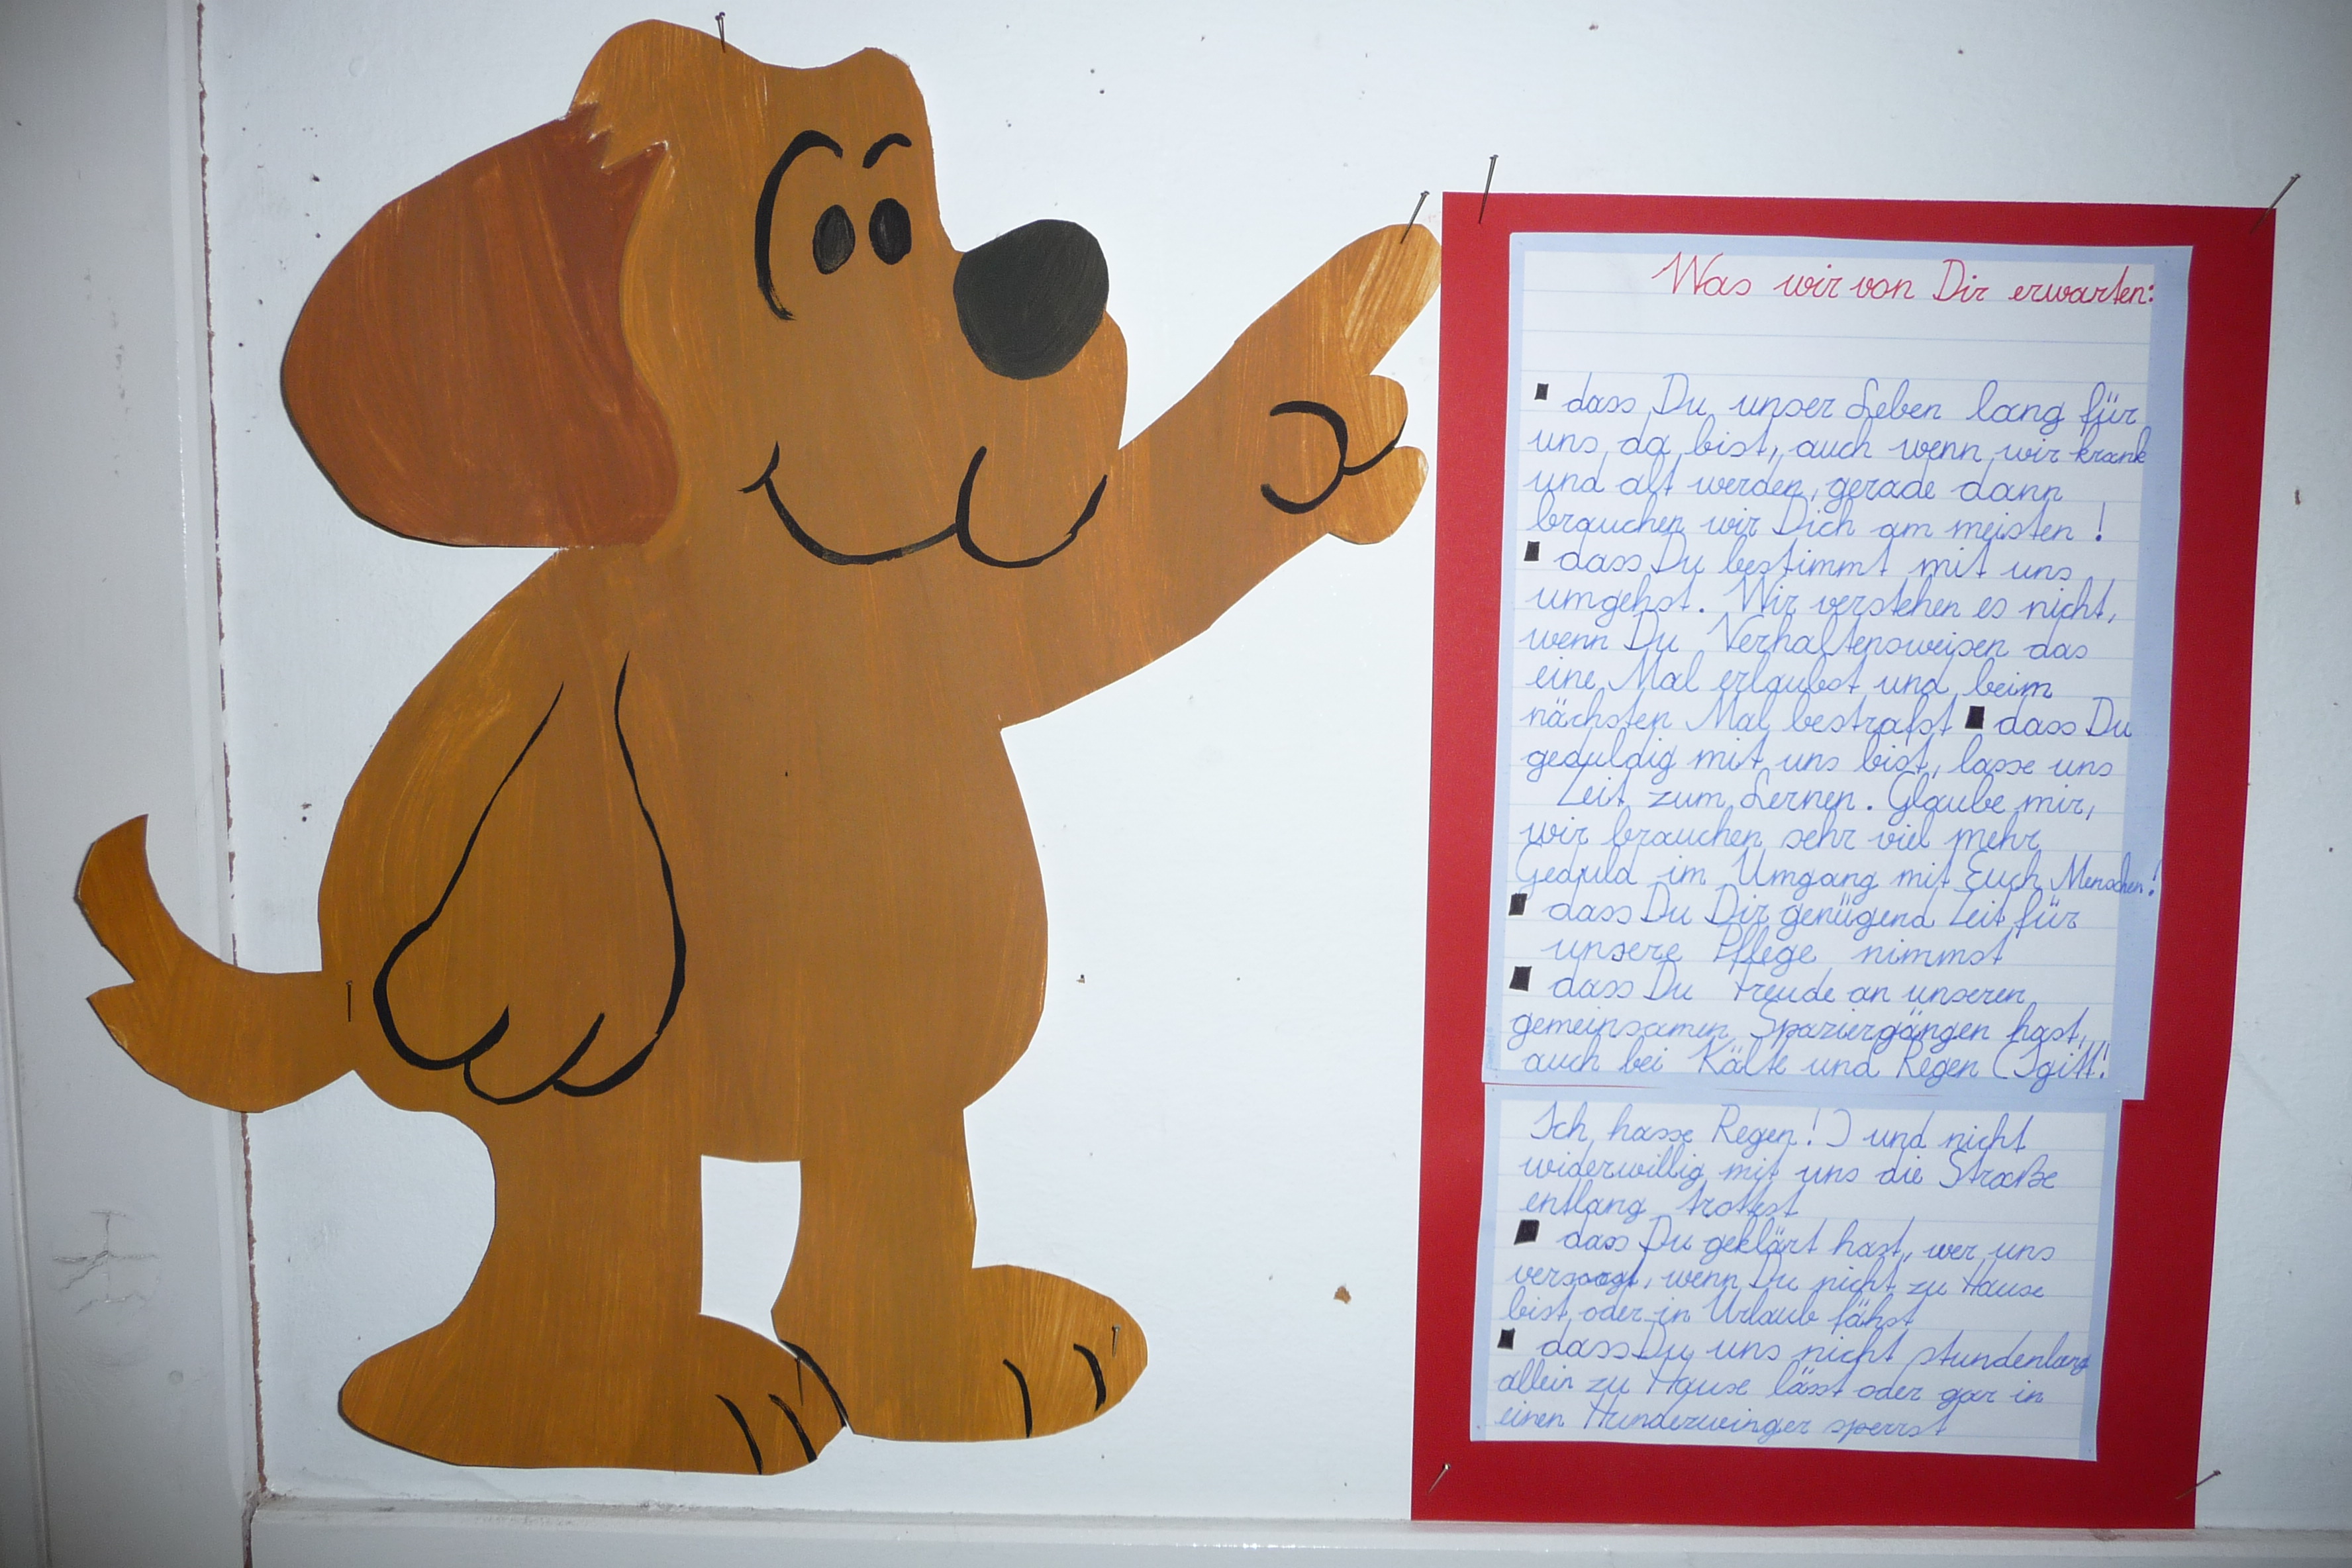 Was wir von Dir erwarten:
▪ dass Du unser Leben lang für
uns da bist, auch wenn wir krank
und alt werden, gerade dann
brauchen wir Dich am meisten!
▪ dass Du bestimmt mit uns
umgehst. Wir verstehen es nicht,
wenn Du Verhaltensweisen das
eine Mal erlaubst und beim
nächsten Mal bestrafst ▪ dass Du
geduldig mit uns bist, lasse uns
Zeit zum Lernen. Glaube mir,
wir brauchen sehr viel mehr
Geduld im Umgang mit Euch Menschen!
▪ dass Du Dir genügend Zeit für
unsere Pflege nimmst
▪ dass Du Freude an unseren
gemeinsamen Spaziergängen hast,
auch bei Kälte und Regen (Igitt!
Ich hasse Regen!) und nicht
widerwillig mit uns die Straße
entlang trottest
▪ dass Du geklärt hast, wer uns
versorgt, wenn Du nicht zu Hause
bist oder in Urlaub fähst
▪ dass Du uns nicht stundenlang
allein zu Hause lässt oder gar in
einen Hundezwinger sperrst